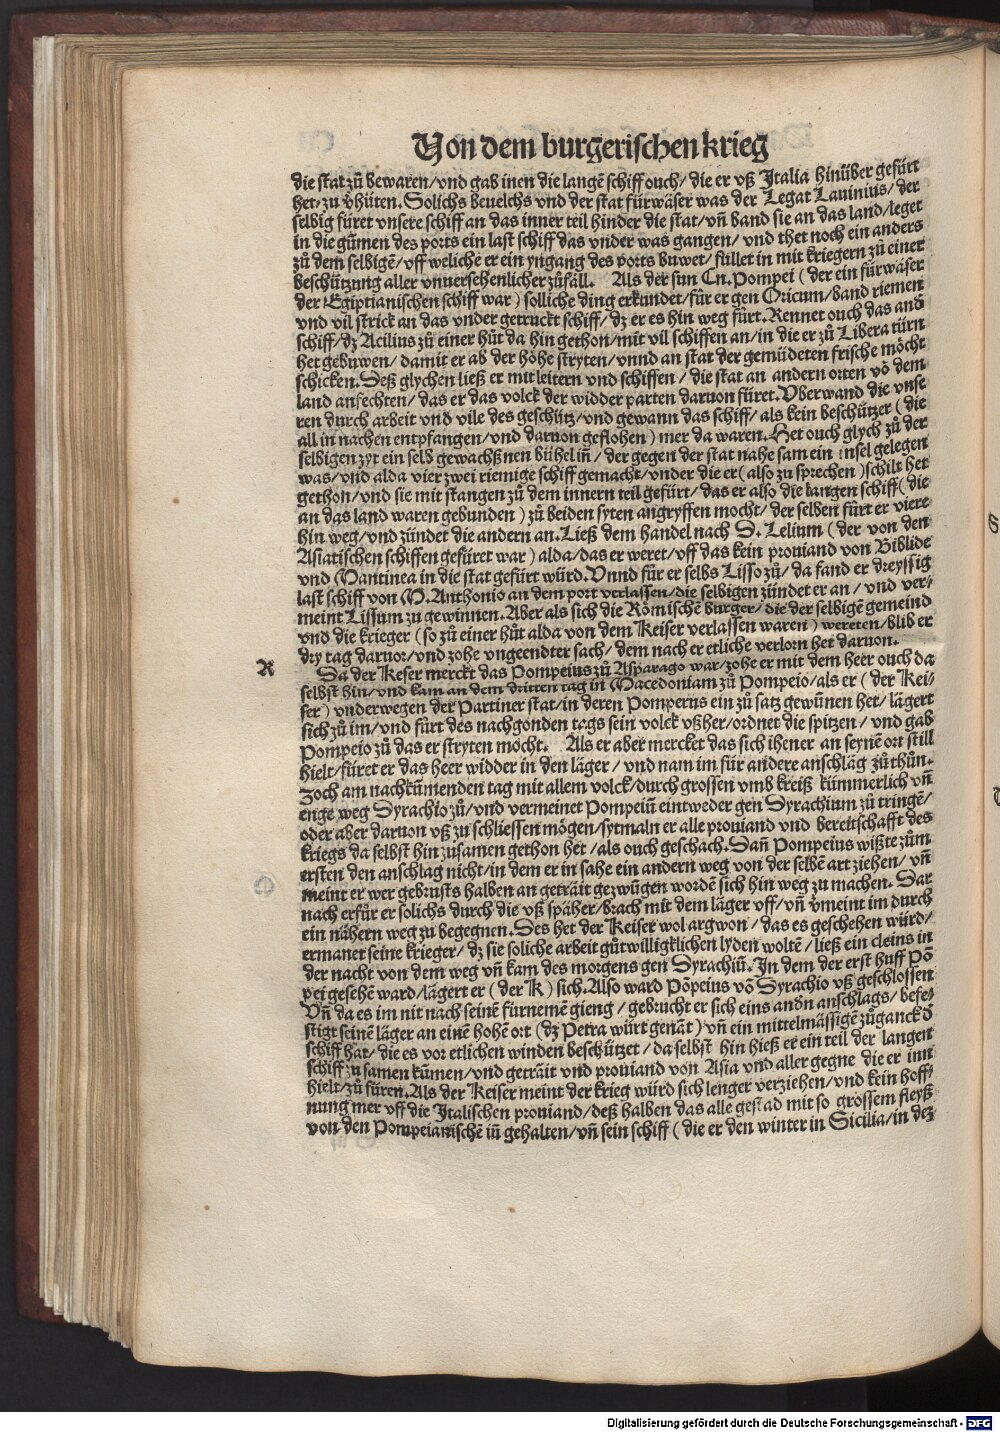 Von dem burgerischen krieg
die stat zů bewaren/vnd gab inen die langē schiff ouch/ die er vß Italia hinüber gefürt
het/zu v̄hüten. Solichs beuelchs vnd der stat fürwäser was der Legat Lauinius/ der
selbig füret vnsere schiff an das inner teil hinder die stat/vn̄ band sie an das land/leget
in die gůmen des ports ein last schiff das vnder was gangen/ vnd thet noch ein anders
zů dem selbigē/vff weliche er ein yngang des ports buwet/füllet in mit kriegern zů einer
beschützung aller vnuersehenlicher zůfäll. Als der sun Cn. Pompei (der ein fürwäser
der Egiptianischen schiff war) solliche ding erkundet/fůr er gen Oricum/band riemen
vnd vil strick an das vnder getruckt schiff/dz er es hin weg fůrt. Rennet ouch das and̄
schiff/dz Acilius zů einer hůt da hin gethon/mit vil schiffen an/in die er zů Libera türn
het gebuwen/damit er ab der höhe stryten/vnnd an stat der gemüdeten frische möcht
schicken. Deß glychen ließ er mit leitern vnd schiffen/die stat an andern orten vō dem
land anfechten/das er das volck der widder parten daruon füret. Vberwand die vnse
ren durch arbeit vnd vile des geschütz/vnd gewann das schiff/als kein beschützer (die
all in nachen entpfangen/vnd daruon geflohen) mer da waren. Het ouch glych zů der
selbigen zyt ein selb gewachßnen bühel in̄/der gegen der stat nahe sam ein insel gelegen
was/vnd alda vier zwei riemige schiff gemacht/vnder die er (also zu sprechen) schilt het
gethon/vnd sie mit stangen zů dem innern teil gefürt/das er also die langen schiff (die
an das land waren gebunden) zů beiden syten angryffen mocht/der selben fůrt er viere
hin weg/vnd zündet die andern an. Ließ dem handel nach D. Lelium (der von den
Asiatischen schiffen gefüret war) alda/das er weret/vff das kein prouiand von Biblide
vnd Mantinea in die stat gefürt würd. Vnnd fůr er selbs Lisso zů/da fand er dreyssig
last schiff von M. Anthonio an dem port verlassen/die selbigen zündet er an/vnd ver-
meint Lissum zu gewinnen. Aber als sich die Römischē burger/die der selbigē gemeind
vnd die krieger (so zů einer hůt alda von dem Keiser verlassen waren) wereten/blib er
dry tag daruor/vnd zohe vngeendter sach/dem nach er etliche verlorn het daruon.
R
Da der Keser merckt das Pompeius zů Asparago war/zohe er mit dem heer ouch da
selbst hin/vnd kam an dem dritten tag in Macedoniam zů Pompeio/als er (der Kei-
ser) vnderwegen der Partiner stat/in deren Pomperus ein zů satz gewūnen het/lägert
sich zů im/vnd fůrt des nachgonden tags sein volck vßher/ordnet die spitzen/vnd gab
Pompeio zů das er stryten möcht. Als er aber mercket das sich ihener an seynē ort still
hielt/füret er das heer widder in den läger/vnd nam im für andere anschläg zů thůn.
Zoch am nachkūmenden tag mit allem volck/durch grossen vmb kreiß kümmerlich vn̄
enge weg Dyrachio zů/vnd vermeinet Pompeiū eintweder gen Dyrachium zů tringē/
oder aber daruon vß zu schliessen mögen/sytmaln er alle prouiand vnd bereitschafft des
kriegs da selbst hin zusamen gethon het/als ouch geschach. Dan̄ Pompeius wißte zům
ersten den anschlag nicht/in dem er in sahe ein andern weg von der selbē art ziehen/vn̄
meint er wer gebrusts halben an geträit gezwūgen wordē sich hin weg zu machen. Dar
nach erfůr er solichs durch die vß späher/brach mit dem läger vff/vn̄ v̄meint im durch
ein nähern weg zu begegnen. Des het der Keiser wol argwon/das es geschehen würd/
ermanet seine krieger/dz sie soliche arbeit gůtwilligklichen lyden woltē/ließ ein cleins in
der nacht von dem weg vn̄ kam des morgens gen Dyrachiū. In dem der erst huff Pō
pei gesehē ward/lägert er (der K) sich. Also ward Pōpeius vō Dyrachio vß geschlossen
Vn̄ da es im nit nach seinē fürnemē gieng/gebrucht er sich eins and̄n anschlags/befe-
stigt seinē läger an einē hohē ort (dz Petra würt genāt) vn̄ ein mittelmässigē zůganck d̄
schiff hat/die es vor etlichen winden beschützet/da selbst hin hieß er ein teil der langen
schiff zu samen kūmen/vnd geträit vnd prouiand von Asia vnd aller gegne die er inn
hielt/zů füren. Als der Keiser meint der krieg würd sich lenger verziehen/vnd kein hoff-
nung mer vff die Italischen prouiand/deß halben das alle gestad mit so grossem fleyß
von den Pompeianischē in̄ gehalten/vn̄ sein schiff (die er den winter in Sicilia/in dez
Digitalisierung gefördert durch die Deutsche Forschungsgemeinschaft - DFG